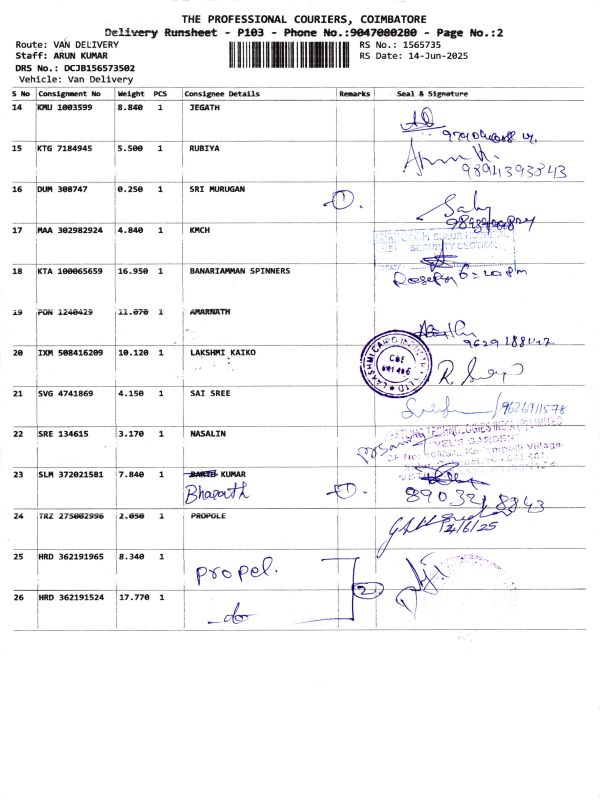 THE PROFESSIONAL COURIERS, COIMBATORE
Delivery Runsheet - P103 - Phone No.:9047080280 - Page No.:2
Route: VAN DELIVERY RS No.: 1565735
Staff: ARUN KUMAR RS Date: 14-Jun-2025
DRS No.: DCJB156573502
Vehicle: Van Delivery
S No Consignment No Weight PCS Consignee Details Remarks Seal & Signature
14 KMU 1003599 8.840 1 JEGATH
15 KTG 7184945 5.500 1 RUBIYA
9894393843
16 DUM 308747 0.250 1 SRI MURUGAN 1.
17 MAA 302982924 4.840 1 KMCH
SECURITY SECTION
18 KTA 100065659 16.950 1 BANARIAMMAN SPINNERS
19 PON 1240429 11.070 1 AMARNATH
20 IXM 508416209 10.120 1 LAKSHMI KAIKO
CBE
641 406
21 SVG 4741869 4.150 1 SAI SREE
9626911578
22 SRE 134615 3.170 1 NASALIN
23 SLM 372021581 7.840 1 KUMAR
Bharath 1.
8903218843
24 TRZ 275002996 2.050 1 PROPOLE
14/6/25
25 HRD 362191965 8.340 1
propel.
26 HRD 362191524 17.770 1 2
do